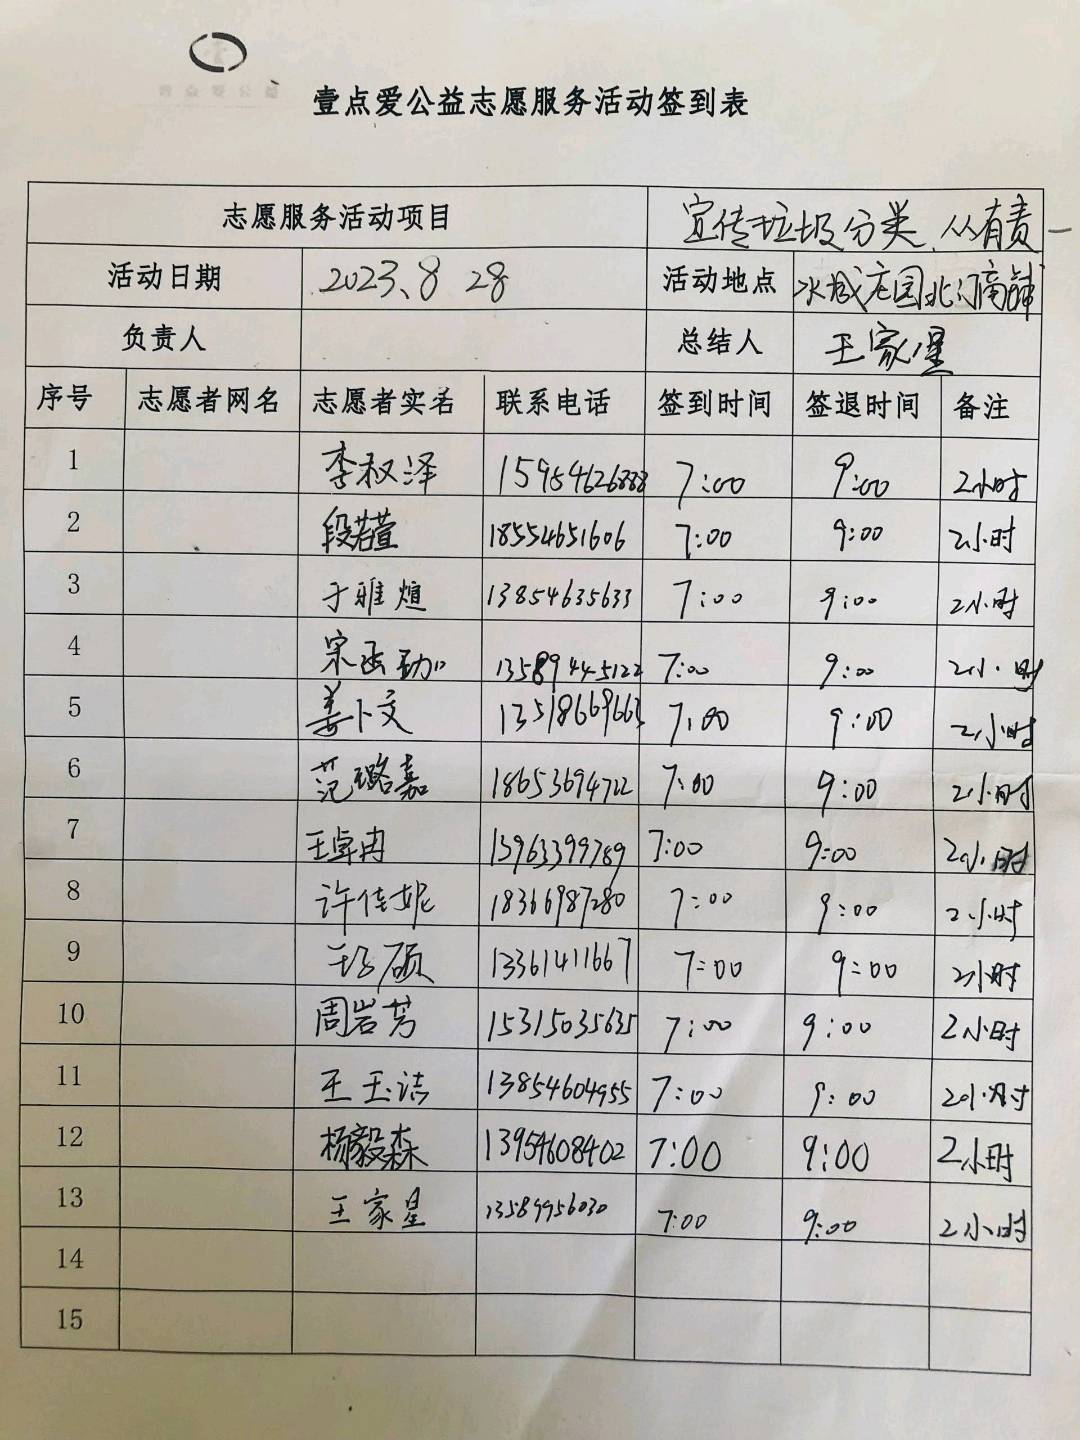 壹点爱公益志愿服务活动签到表
志愿服务活动项目 宣传垃圾分类、从有责
活动日期 2023、8 28 活动地点 冰城庄园北门商铺
负责人 总结人 王家星
序号 志愿者网名 志愿者实名 联系电话 签到时间 签退时间 备注
1 李权泽 15954626888 7:00 9:00 2小时
2 段若萱 18554651606 7:00 9:00 2小时
3 于雅煊 13854635633 7:00 9:00 2小时
4 宋函勐 13589445122 7:00 9:00 2小时
5 姜卜文 13518669663 7:00 9:00 2小时
6 范璐嘉 18653694722 7:00 9:00 2小时
7 王卓冉 15963399789 7:00 9:00 2小时
8 许佳妮 18366987280 7:00 9:00 2小时
9 硕 13361411667 7:00 9:00 2小时
10 周岩芳 15315035635 7:00 9:00 2小时
11 王玉洁 13854604955 7:00 9:00 2小时
12 杨毅森 13954608402 7:00 9:00 2小时
13 王家星 13589956030 7:00 9:00 2小时
14
15